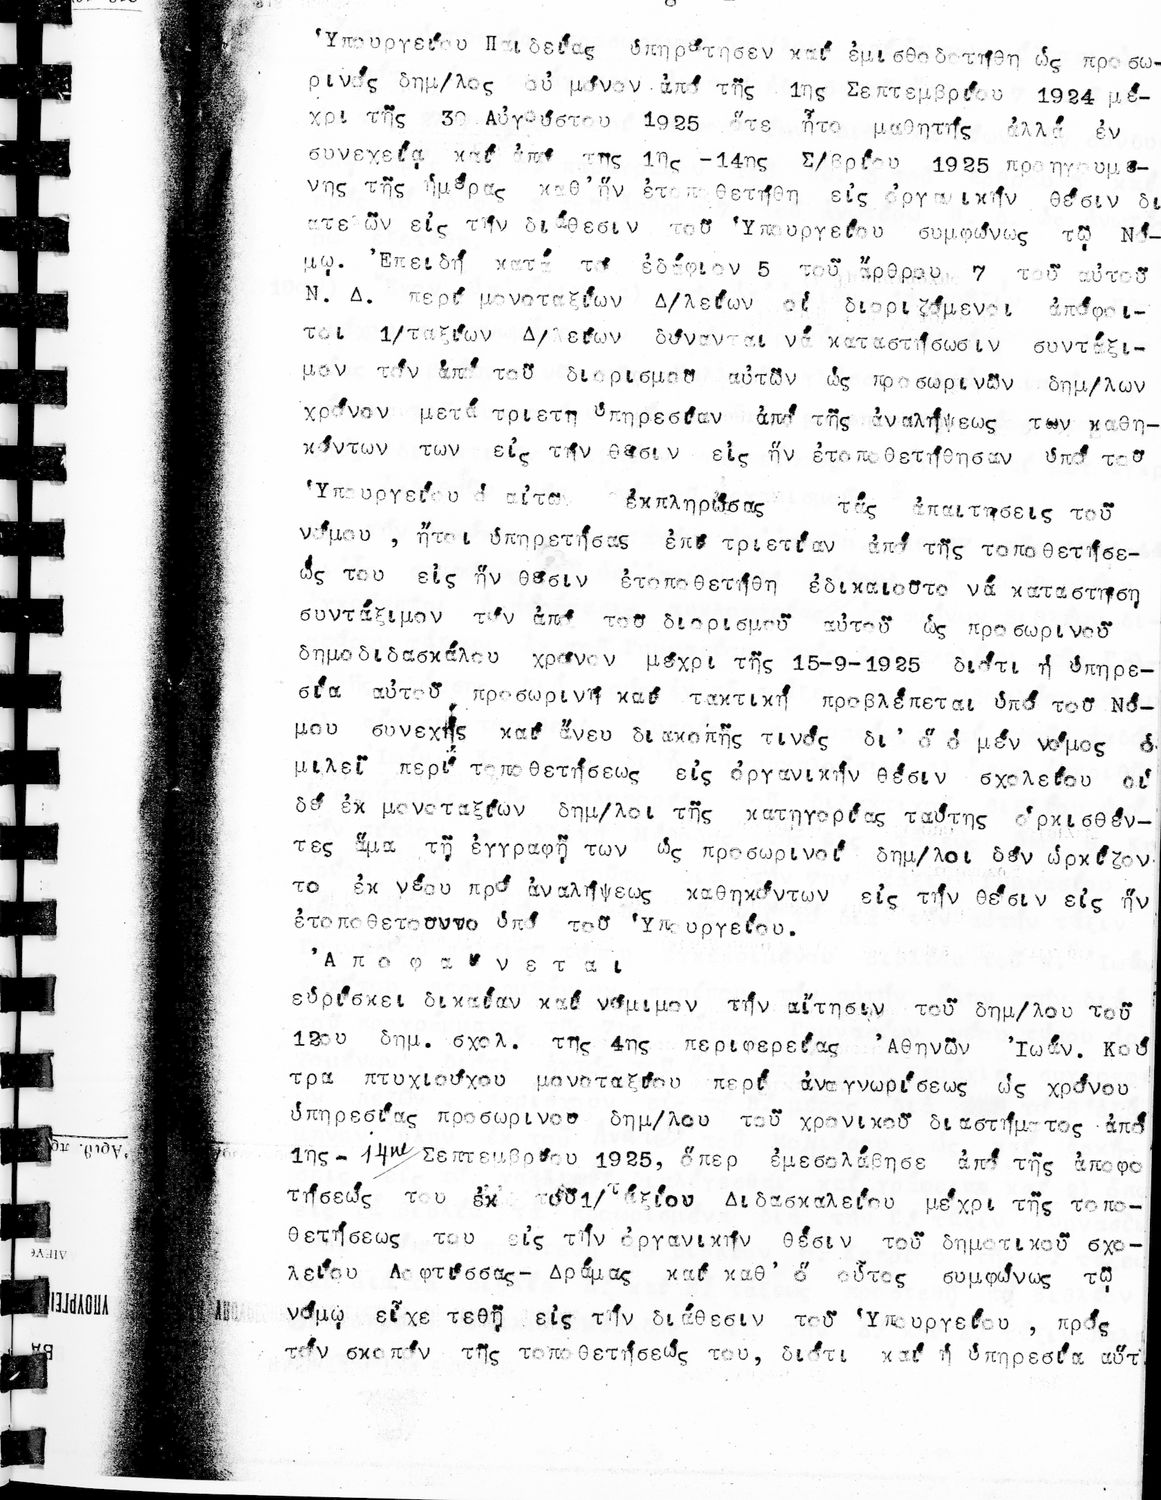 Ὑπουργείου Παιδείας ὑπηρέτησεν καί ἐμισθοδοτήθη ὡς προσω-
ρινός δημ/λος οὐ μόνον ἀπό τῆς 1ης Σεπτεμβρίου 1924 μέ-
χρι τῆς 30 Αὐγούστου 1925 ὅτε ἦτο μαθητής ἀλλά ἐν
συνεχείᾳ καί ἀπό της 1ης -14ης Σ/βρίου 1925 προηγουμέ-
νης τῆς ἡμέρας καθ'ἥν ἐτοποθετήθη εἰς ὀργανικήν θέσιν δι
ατεθῶν εἰς τήν διάθεσιν τοῦ Ὑπουργείου συμφώνως τῷ Νό-
μῳ. Ἐπειδή κατά το ἐδάφιον 5 τοῦ ἄρθρου 7 τοῦ αὐτοῦ
Ν. Δ. περί μονοταξίων Δ/λείων οἱ διοριζόμενοι ἀπόφοι-
τοι 1/ταξίων Δ/λείων δύνανται νά καταστήσωσιν συντάξι-
μον τόν ἀπό τοῦ διορισμοῦ αὐτῶν ὡς προσωρινῶν δημ/λων
χρόνον μετά τριετη ὑπηρεσίαν ἀπό τῆς ἀναλήψεως των καθη-
κόντων των εἰς τήν θέσιν εἰς ἥν ἐτοποθετήθησαν ὑπό τοῦ
Ὑπουργείου ὁ αἰτῶν ἐκπληρώσας τάς ἀπαιτησεις τοῦ
νόμου , ἤτοι ὑπηρετήσας ἐπί τριετίαν ἀπό τῆς τοποθετήσε-
ώς του εἰς ἥν θέσιν ἐτοποθετήθη ἐδικαιοῦτο νά καταστήση
συντάξιμον τόν ἀπό τοῦ διορισμοῦ αὐτοῦ ὡς προσωρινοῦ
δημοδιδασκάλου χρόνον μέχρι τῆς 15-9-1925 διότι ἡ ὑπηρε-
σία αὐτοῦ προσωρινή καί τακτική προβλέπεται ὑπό τοῦ Νό-
μου συνεχής καί ἄνευ διακοπῆς τινός δι' ὅ ὁ μέν νόμος ὁ-
μιλεῖ περί τοποθετήσεως εἰς ὀργανικήν θέσιν σχολείου οἱ
δέ ἐκ μονοταξίων δημ/λοι τῆς κατηγορίας ταύτης ὁρκισθέν-
τες ἅμα τῇ ἐγγραφῇ των ὡς προσωρινοί δημ/λοι δέν ὡρκίζον-
το ἐκ νέου πρό ἀναλήψεως καθηκόντων εἰς τήν θέσιν εἰς ἥν
ἐτοποθετοῦντο ὑπό τοῦ Ὑπουργείου.
Ἀ π ο φ α ί ν ε τ α ι
εὑρίσκει δικαίαν καί νόμιμον τήν αἴτησιν τοῦ δημ/λου τοῦ
12ου δημ. σχολ. της 4ης περιφερείας Ἀθηνῶν Ἰωάν. Κού
τρα πτυχιούχου μονοταξίου περί ἀναγνωρίσεως ὡς χρόνου
ὑπηρεσίας προσωρινοῦ δημ/λου τοῦ χρονικοῦ διαστήματος ἀπό
1ης- 14ης Σεπτεμβρίου 1925, ὅπερ ἐμεσολάβησε ἀπό τῆς ἀποφο
τήσεώς του ἐκ τοῦ 1/ταξίου Διδασκαλείου μέχρι τῆς τοπο-
θετήσεως του εἰς τήν ὀργανικήν θέσιν τοῦ δημοτικοῦ σχο-
λείου Λοφτίσσας- Δράμας καί καθ' ὅ οὗτος συμφώνως τῷ
νόμῳ εἶχε τεθῇ εἰς τήν διάθεσιν τοῦ Ὑπουργείου , πρός
τόν σκοπόν τῆς τοποθετήσεώς του, διότι καί ἡ ὑπηρεσία αὕτ